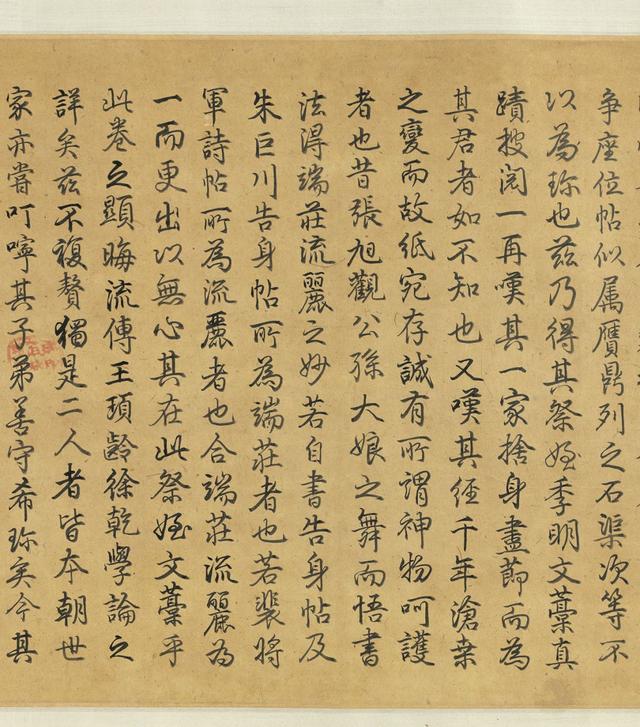 争座位帖似属贋鼎列之石渠次等不
以為珎也茲乃得其祭姪季明文藁真
蹟披阅一再嘆其一家捨身盡節而為
其君者如不知也又嘆其經千年滄桒
之變而故紙宛存誠有所謂神物呵護
者也昔張旭觀公孫大娘之舞而悟書
法得端莊流麗之妙若自書告身帖及
朱巨川告身帖所為端莊者也若裴將
軍詩帖所為流麗者也合端莊流麗為
一而更出以無心其在此祭姪文藁乎
此卷之顯晦流傳王頊齡徐乾學論之
詳矣茲不複贅獨是二人者皆本朝世
家亦嘗叮嚀其子弟善守希珎矣今其